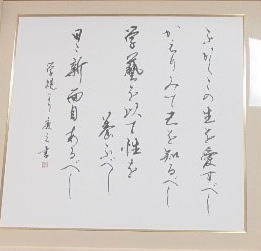 ふかくこの生を愛すべし
かへりみて己を知るべし
学藝を以て性を
養ふべし
日々新面目あるべし
学規より